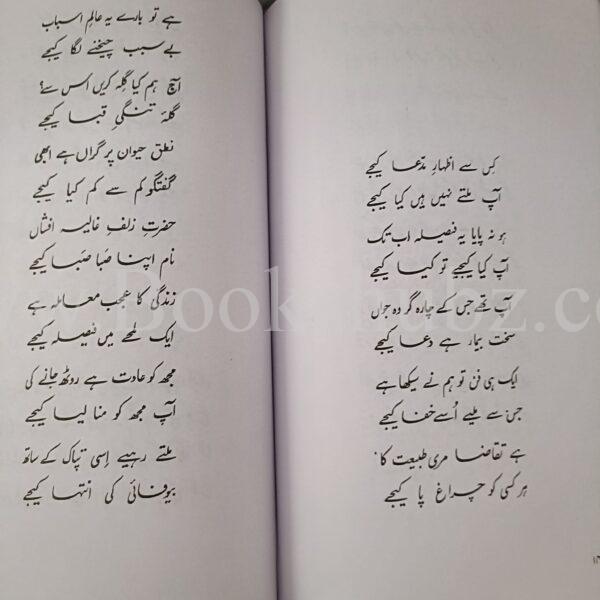 کس سے اظہارِ مدّعا کیجے
آپ ملتے نہیں ہیں کیا کیجے
ہو نہ پایا یہ فیصلہ اب تک
آپ کیا کیجیے تو کیا کیجے
آپ تھے جس کے چارہ گر وہ جواں
سخت بیمار ہے دعا کیجے
ایک ہی فن تو ہم نے سیکھا ہے
جس سے ملیے اُسے خفا کیجے
ہے تقاضا مری طبیعت کا
ہر کسی کو چراغ پا کیجے
ہے تو بارے یہ عالمِ اسباب
بے سبب چیخنے لگا کیجے
آج ہم کیا گِلہ کریں اُس سے؟
گلۂ تنگیِ قبا کیجے
نطق حیوان پر گراں ہے ابھی
گفتگو کم سے کم کیا کیجے
حضرتِ زلفِ غالیہ افشاں
نام اپنا صبا صبا کیجے
زندگی کا عجب معاملہ ہے
ایک لمحے میں فیصلہ کیجے
مجھ کو عادت ہے روٹھ جانے کی
آپ مجھ کو منا لیا کیجے
ملتے رہیے اِسی تپاک کے ساتھ
بیوفائی کی انتہا کیجے